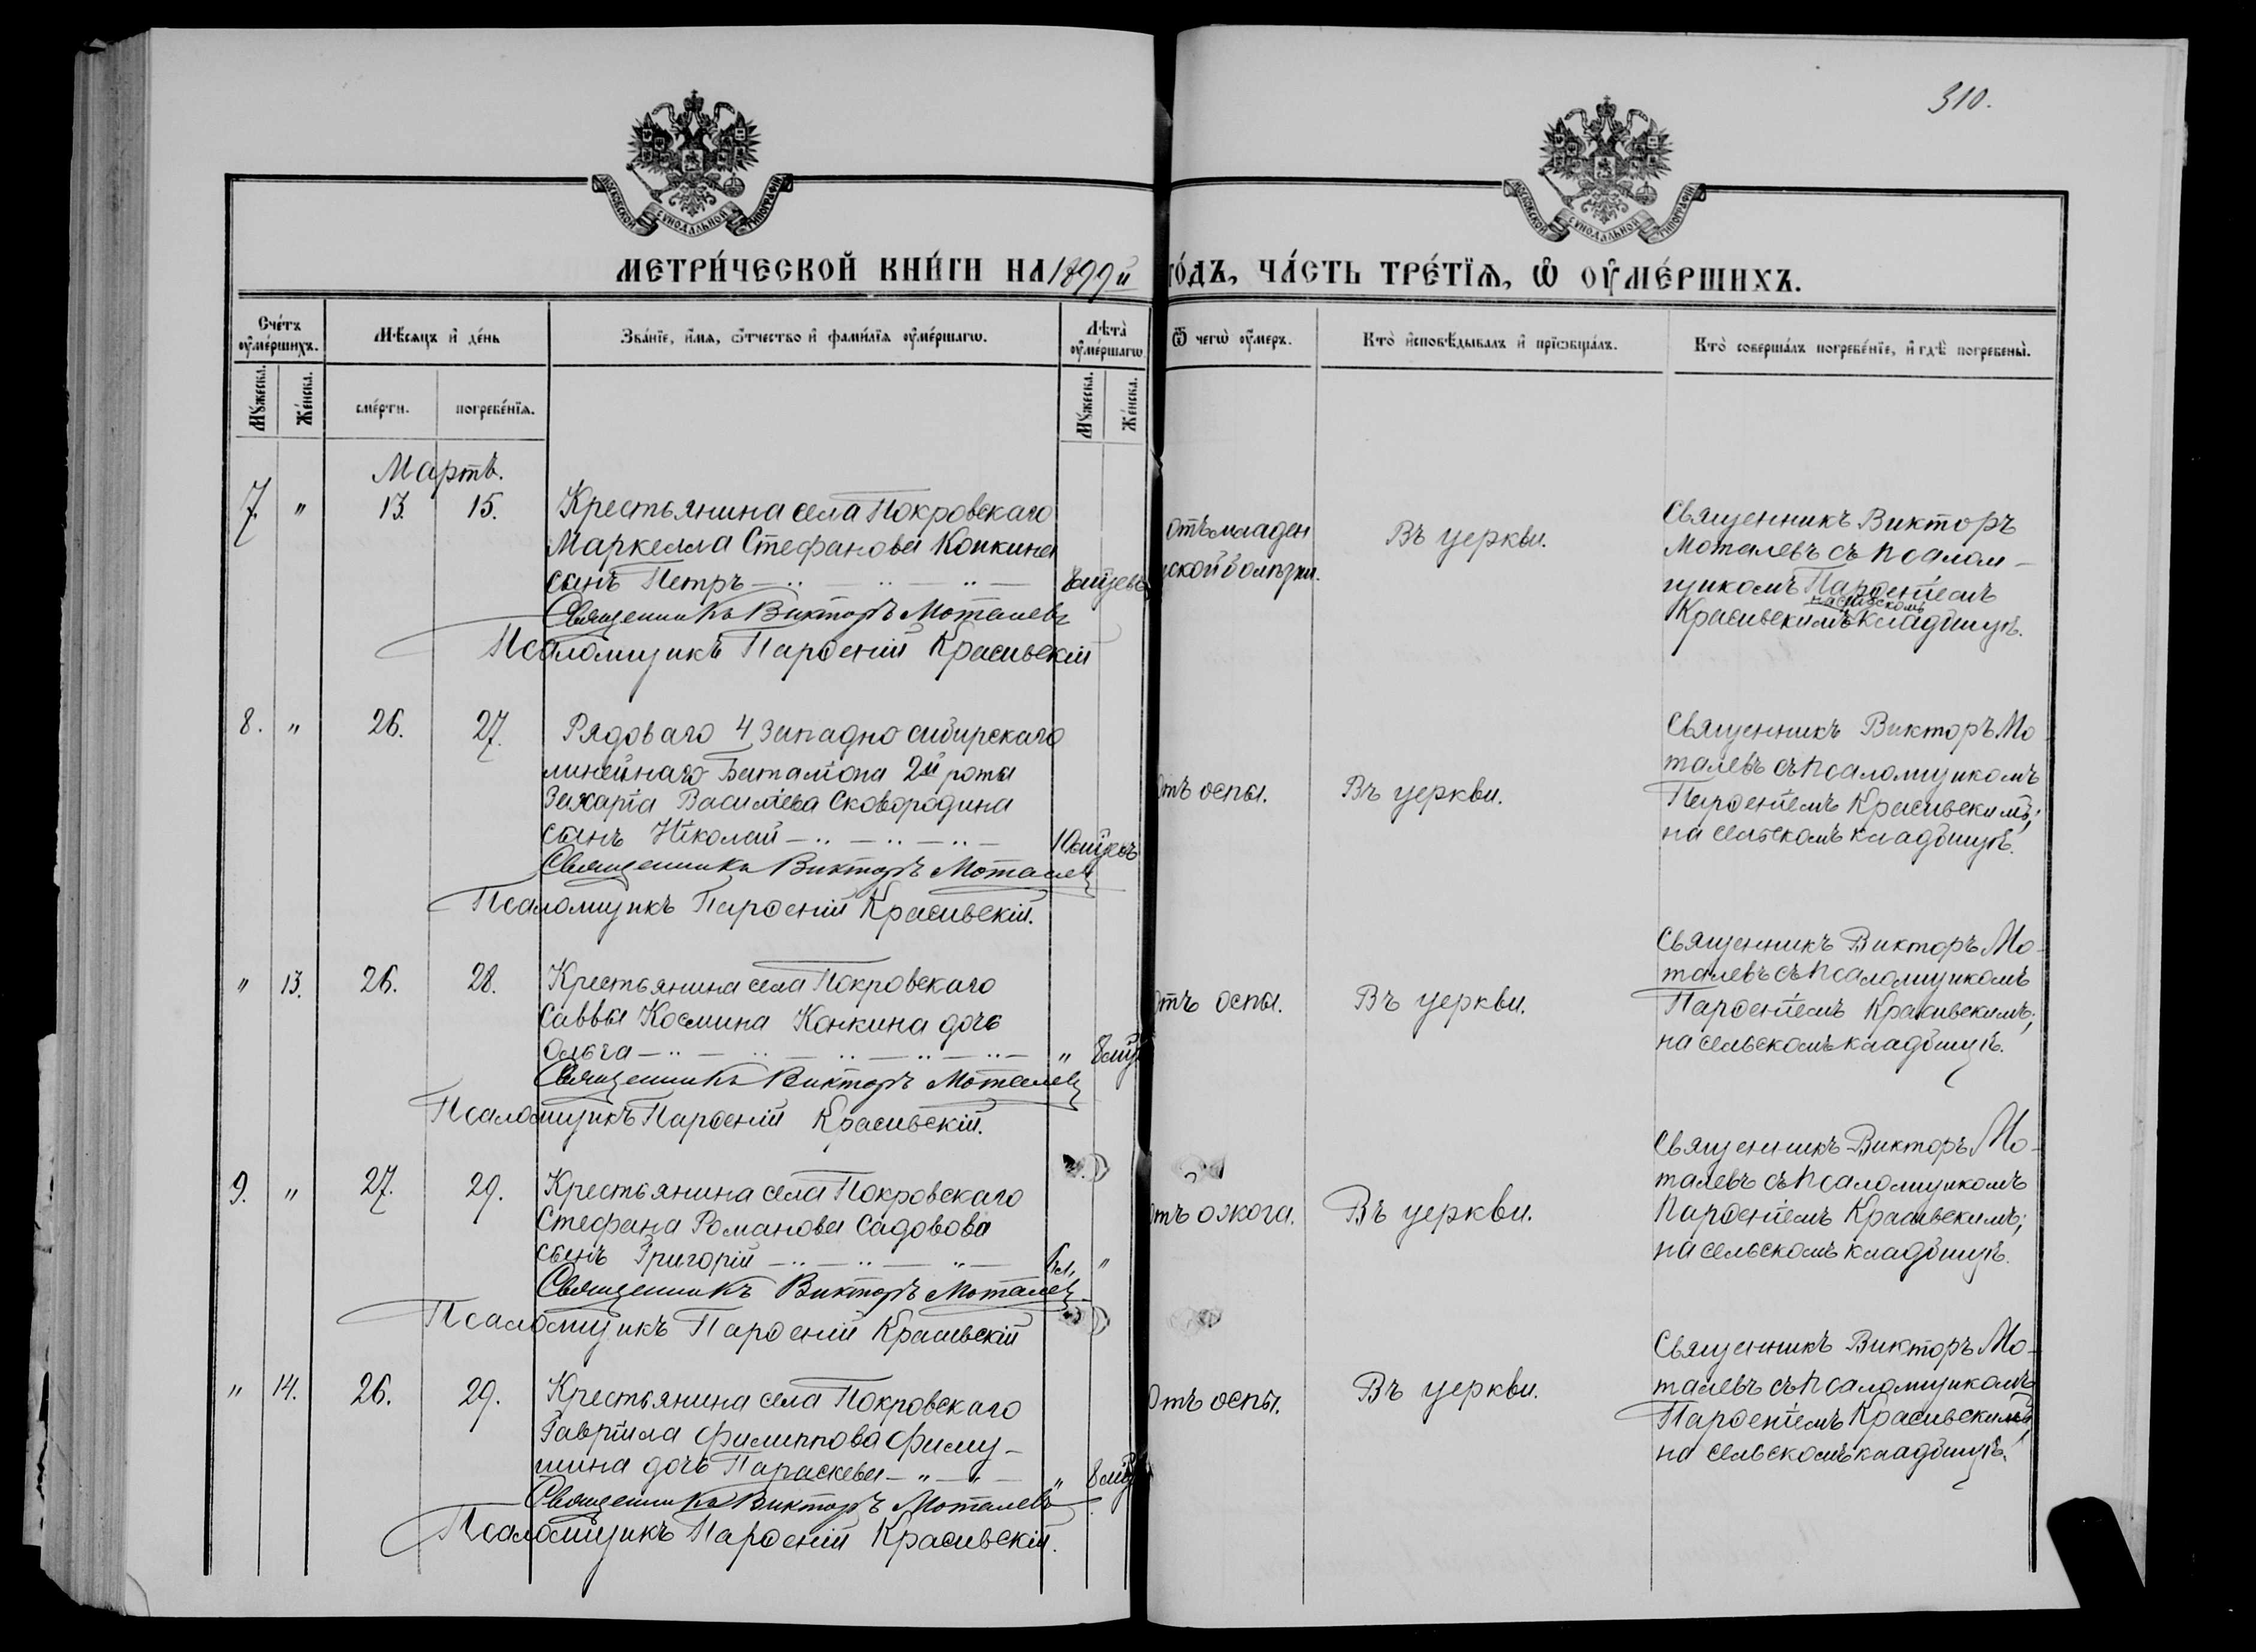 310.
МОСКОВСКОЙ СѴНОДАЛЬНОЙ ТИПОГРАФІИ
МОСКОВСКОЙ СѴНОДАЛЬНОЙ ТИПОГРАФІИ
МЕТРИ́ЧЕСКОЙ КНИ́ГИ НА 1899й ГО́ДЪ, ЧА́СТЬ ТРЕ́ТЇѦ, Ѡ҆ ОУ҆МЕ́РШИХЪ.
Сче́тъ оу҆ме́ршихъ.
Мѣ́сяцъ и҆ де́нь
Зва́нїе, и҆́мѧ, ѻ҆́тчество и҆ фами́лїѧ оу҆ме́ршагѡ.
Лѣта̀ оу҆ме́ршагѡ.
Ѿ чегѡ̀ оу҆́меръ.
Кто̀ и҆сповѣ́дывалъ и҆ прїѡбща́лъ.
Кто̀ соверша́лъ погребе́нїе, и҆ гдѣ̀ погребены̀.
Мꙋ́жеска.
Же́нска.
сме́рти.
погребе́нїѧ.
Мꙋ́жеска.
Же́нска.
Мартъ.
7. " 13. 15. Крестьянина села Покровскаго
Маркелла Стефанова Конкина
сынъ Петръ 8 мѣсцевъ
Священникъ Викторъ Моталевъ
Псаломщикъ Парѳеній Красивскій
отъ младен
ской болѣзни.
Въ церкви.
Священникъ Викторъ
Моталевъ съ псалом-
щикомъ Парѳеніемъ
на сельскомъ
Красивскимъ кладбищѣ.
8. " 26. 27. Рядоваго 4 Западно сибирскаго
линейнаго Баталіона 2й роты
Захарія Васильева Сковородина
сынъ Николай 10 мѣсцевъ
Священникъ Викторъ Моталевъ
Псаломщикъ Парѳеній Красивскій.
Отъ оспы.
Въ церкви.
Священникъ Викторъ Мо
талевъ съ псаломщикомъ
Парѳеніемъ Красивскимъ;
на сельскомъ кладбищѣ.
" 13. 26. 28. Крестьянина села Покровскаго
Саввы Космина Конкина дочь
Ольга " 8 мѣц
Священникъ Викторъ Моталевъ
Псаломщикъ Парѳеній Красивскій.
Отъ оспы.
Въ церкви.
Священникъ Викторъ Мо-
талевъ съ псаломщикомъ
Парѳеніемъ Красивскимъ;
на сельскомъ кладбищѣ.
9. " 27. 29. Крестьянина села Покровскаго
Стефана Романова Садовова
сынъ Григорій "
Священникъ Викторъ Моталевъ
Псаломщикъ Парѳеній Красивскій
Отъ ожога.
Въ церкви.
Священникъ Викторъ Мо-
талевъ съ псаломщикомъ
Парѳеніемъ Красивскимъ;
на сельскомъ кладбищѣ.
" 14. 26. 29. Крестьянина села Покровскаго
Гавріила Филиппова Филу-
шина дочь Параскева " 8 мѣц
Священникъ Викторъ Моталевъ
Псаломщикъ Парѳеній Красивскій.
Отъ оспы.
Въ церкви.
Священникъ Викторъ Мо-
талевъ съ псаломщикомъ
Парѳеніемъ Красивскимъ,
на сельскомъ кладбищѣ.